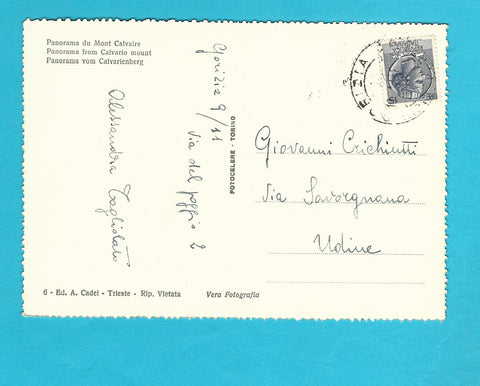 Panorama du Mont Calvaire
Panorama from Calvario mount
Panorama vom Calvarienberg
Gorizia 9/11
Via del poggio 2
Alessandra Tagliolato
FOTOCELERE - TORINO
GORIZIA
Giovanni Crichiutti
Via Savorgnana
Udine
6 - Ed. A. Cadel - Trieste - Rip. Vietata
Vera Fotografia